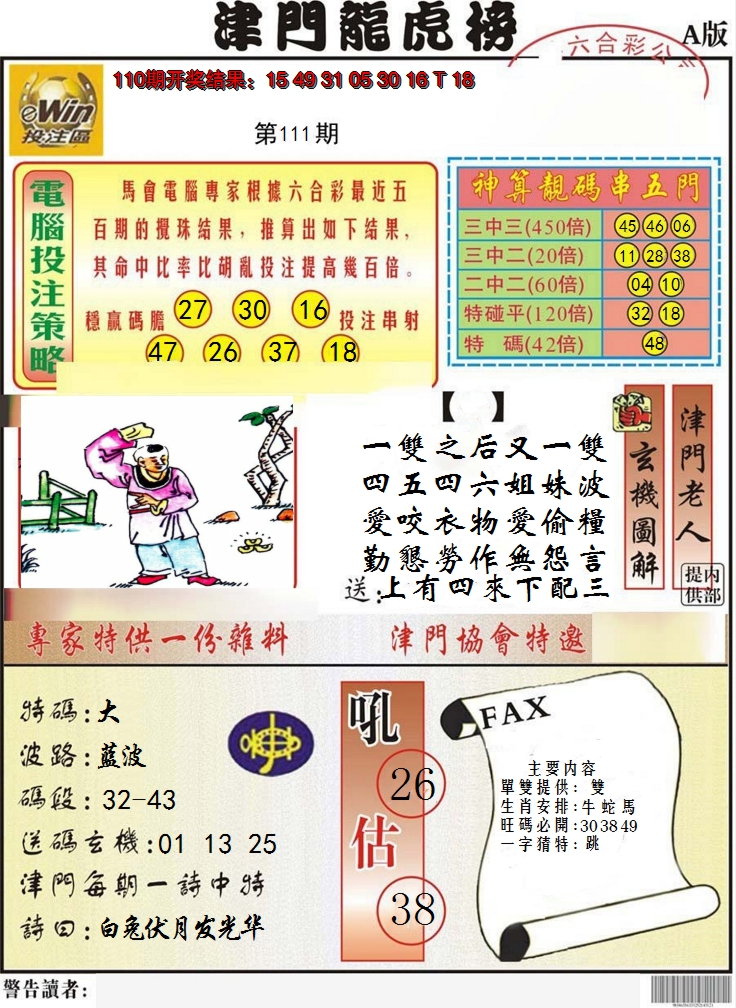 津門龍虎榜
六合彩公
A版
110期开奖结果：15 49 31 05 30 16 T 18
eWin
投注區
第111期
電腦投注策略
馬會電腦專家根據六合彩最近五
百期的攪珠结果，推算出如下结果，
其命中比率比胡亂投注提高幾百倍。
穩贏碼膽 27 30 16 投注串射
47 26 37 18
神算靚码串五門
三中三(450倍) 45 46 06
三中二(20倍) 11 28 38
二中二(60倍) 04 10
特碰平(120倍) 32 18
特 碼(42倍) 48
【 】
一雙之后又一雙
四五四六姐妹波
愛咬衣物愛偷糧
勤懇勞作無怨言
送:上有四來下配三
玄機圖解
津門老人
内部
提供
專家特供一份雜料
津門協會特邀
特碼:大
波路:藍波
碼段:32-43
送碼玄機:01 13 25
津門每期一詩中特
詩曰:白兔伏月发光华
吼
26
估
38
FAX
主要内容
單雙提供: 雙
生肖安排:牛蛇馬
旺碼必開:30 38 49
一字猜特: 跳
警告讀者: